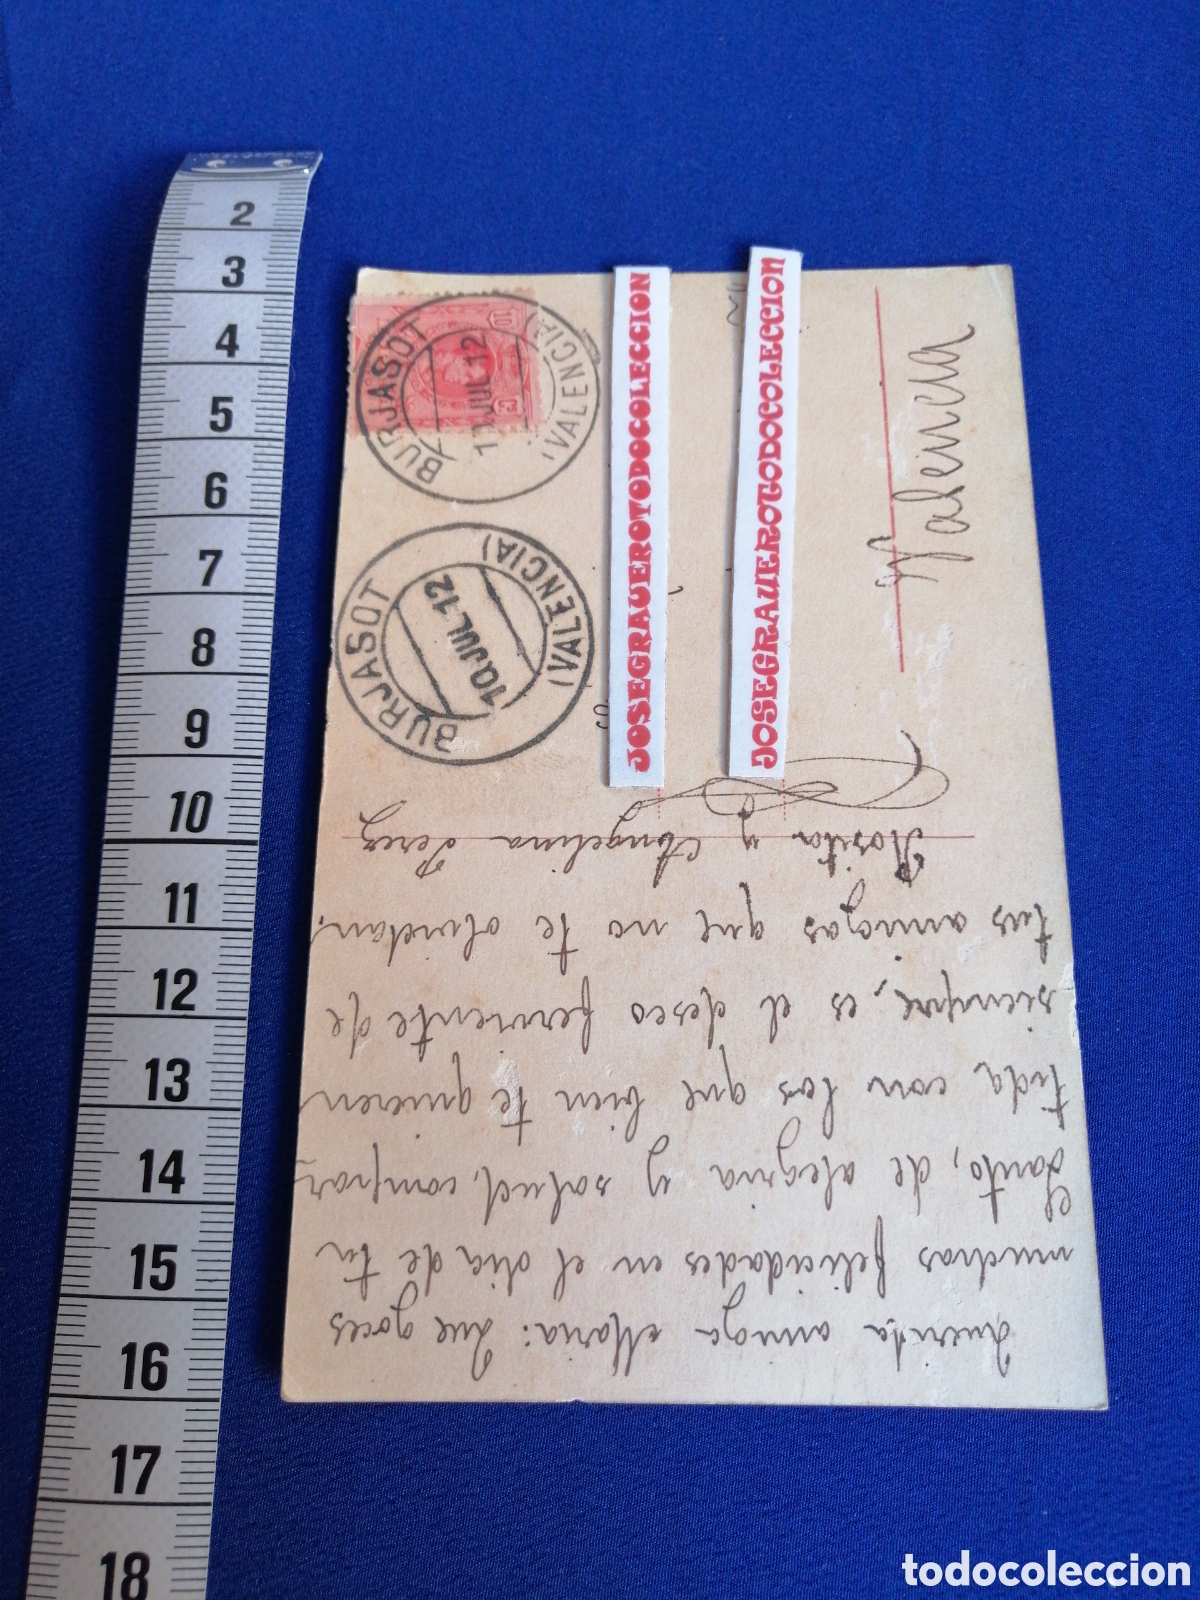 2
3
4
5
6
7
8
9
10
11
12
13
14
15
16
17
18
BURJASOT
10 JUL 12
(VALENCIA)
10 Cs
BURJASOT
10 JUL 12
(VALENCIA)
JOSEGRAUEROTODOCOLECCION
JOSEGRAUEROTODOCOLECCION
Valencia
Querida amiga Maria: Que goces
muchas felicidades en el dia de tu
Santo, de alegria y salud, compar
tida con los que bien te quieren
siempre, es el deseo ferviente de
tus amigas que no te olvidan.
Rosita y Angelina Perez
todocoleccion